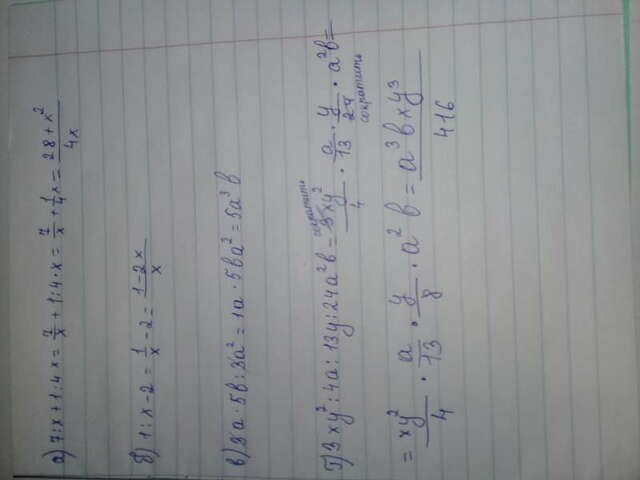 а) 7:x+1:4x = 7/x + 1:4·x = 7/x + 1/4 x = 28+x²/4x
б) 1:x-2 = 1/x - 2 = 1-2x/x
в) 3a·5b:3a² = 1a·5ba² = 5a³b
Г) 3xy²:4a:13y:24a²b = 3xy²/4 · a/13 · y/24 · a²b =
сократить
сократить
= xy²/4 · a/13 · y/8 · a² b = a³bxy³/416